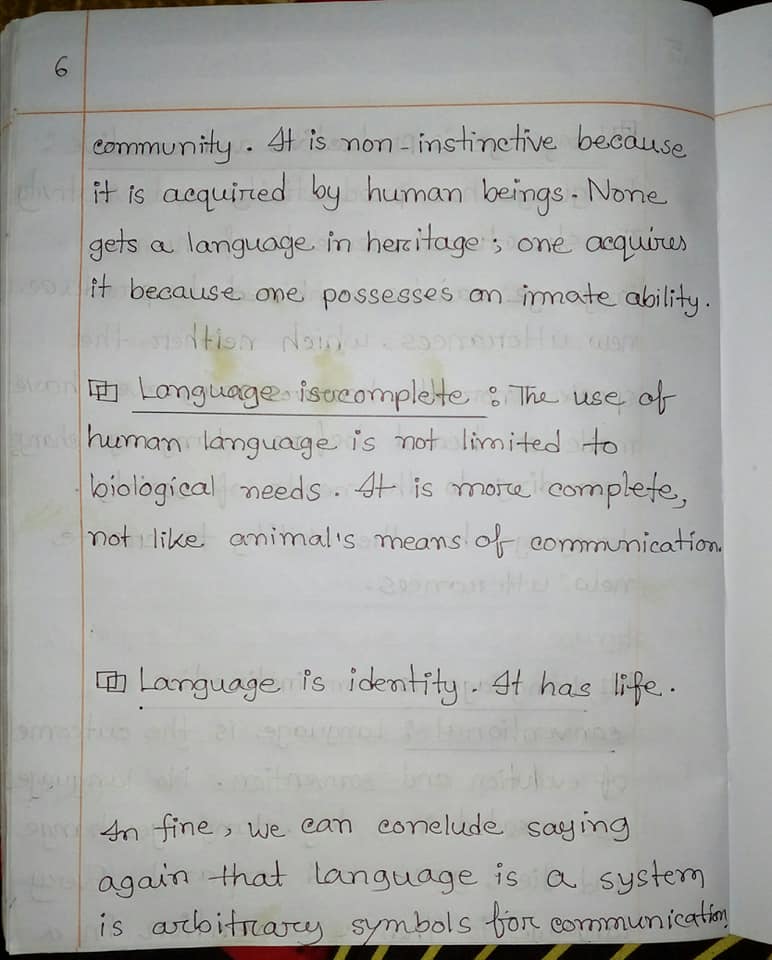 6
community. It is non-instinctive because
it is acquired by human beings. None
gets a language in heritage; one acquires
it because one possesses an innate ability.
Language is complete: The use of
human language is not limited to
biological needs. It is more complete,
not like animal's means of communication.
Language is identity. It has life.
In fine, we can conclude saying
again that language is a system
is arbitrary symbols for communication